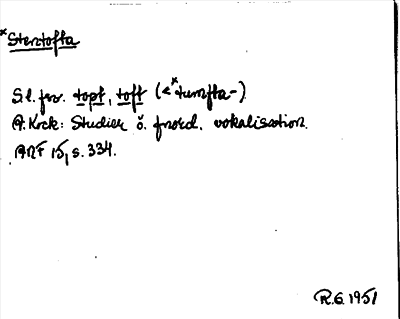 *Stenstofta
S.l. fsv. topt, toft (<*tumfta-)
A. Kock: Studier ö. fnord. vokalisation.
ANF 15, s. 334.
R.G. 1951